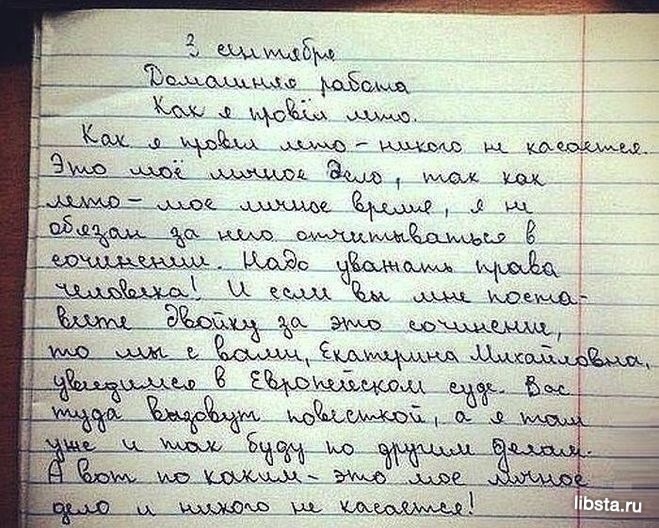 3 сентября
Домашняя работа
Как я провёл лето.
Как я провёл лето - никого не касается.
Это моё личное дело, так как
лето - мое личное время, я не
обязан за него отчитываться в
сочинении. Надо уважать права
человека! И если вы мне поста-
вите двойку за это сочинение,
то мы с вами, Екатерина Михайловна,
увидимся в Европейском суде. Вас
туда вызовут повесткой, а я там
уже и так буду по другим делам.
А вот по каким - это мое личное
дело и никого не касается!
libsta.ru